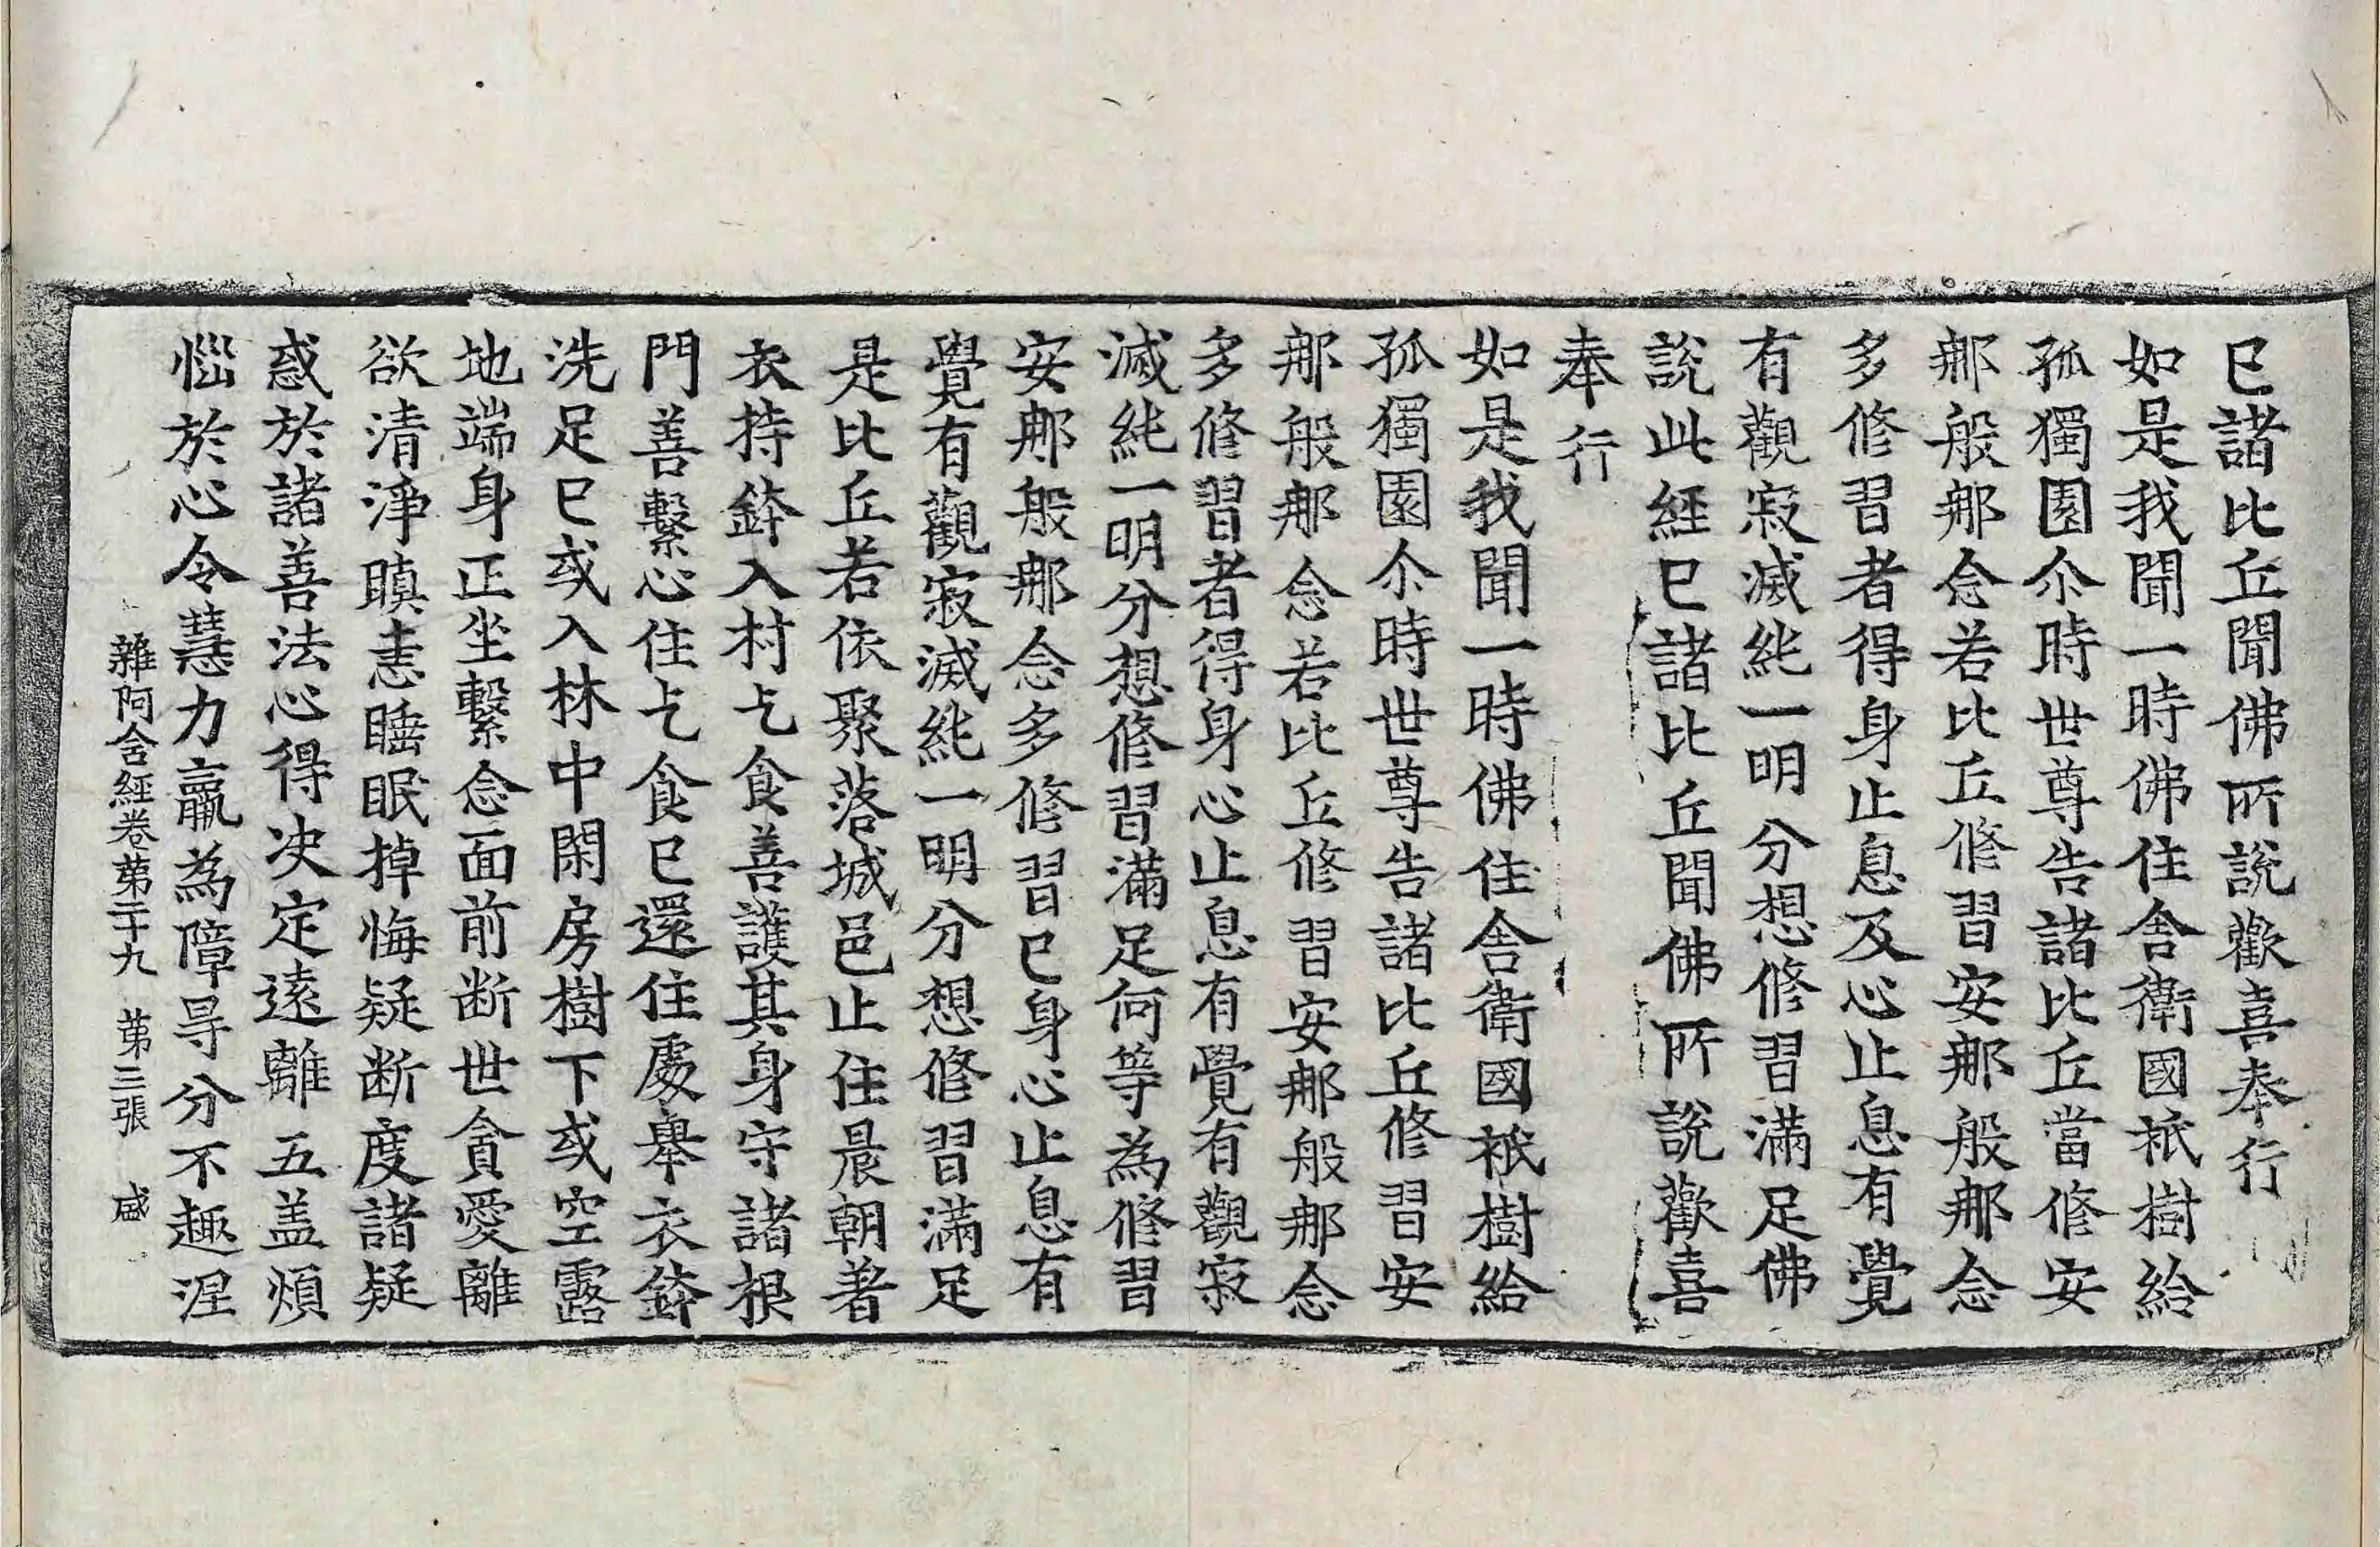 已諸比丘聞佛所說歡喜奉行
如是我聞一時佛住舍衛國祇樹給
孤獨園尒時世尊告諸比丘當修安
那般那念若比丘修習安那般那念
多修習者得身止息及心止息有覺
有觀寂滅純一明分想修習滿足佛
說此経已諸比丘聞佛所說歡喜
奉行
如是我聞一時佛住舍衛國祇樹給
孤獨園尒時世尊告諸比丘修習安
那般那念若比丘修習安那般那念
多修習者得身心止息有覺有觀寂
滅純一明分想修習滿足何等為修習
安那般那念多修習已身心止息有
覺有觀寂滅純一明分想修習滿足
是比丘若依聚落城邑止住晨朝著
衣持鉢入村乞食善護其身守諸根
門善繫心住乞食已還住處舉衣鉢
洗足已或入林中閑房樹下或空露
地端身正坐繫念面前断世貪愛離
欲清淨瞋恚睡眠掉悔疑断度諸疑
惑於諸善法心得决定遠離五盖煩
惱於心令慧力羸為障㝵分不趣涅
雜阿含経卷苐二十九 苐三張 盛